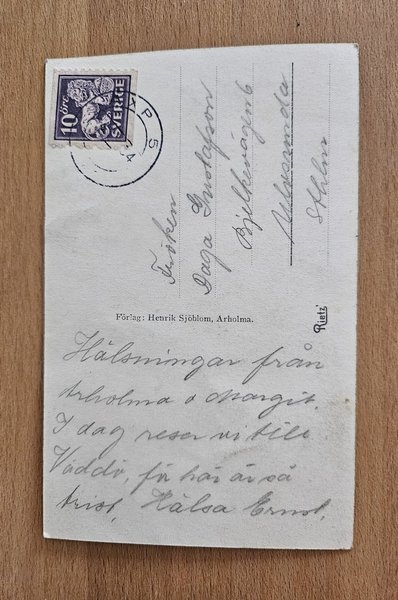 10 öre
SVERIGE
PKP 5
Fröken
Daga Gustafson
Bjelkevägen 6
Ulvsunda
Sthlm
Förlag: Henrik Sjöblom, Arholma.
Rietz
Hälsningar från
Arholma o Margit.
I dag reser vi till
Väddö, för här är så
trist, Hälsa Ernst.